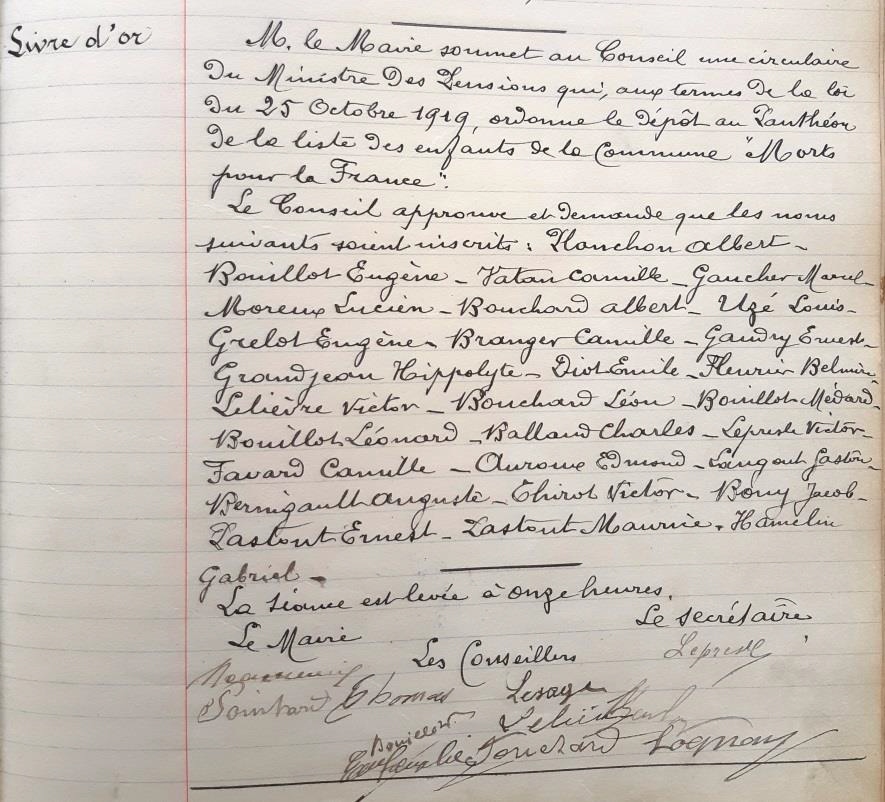 Livre d'or
M. le Maire soumet au Conseil une circulaire
du Ministre des Pensions qui, aux termes de la loi
du 25 Octobre 1919, ordonne le dépôt au Panthéon
de la liste des enfants de la Commune "Morts
pour la France".
Le Conseil approuve et demande que les noms
suivants soient inscrits : Planchon Albert -
Bouillot Eugène - Vatan Camille - Gaucher Marcel -
Moreux Lucien - Bouchard Albert - Uzé Louis -
Grelot Eugène - Branger Camille - Gaudry Ernest -
Grandjean Hippolyte - Diot Emile - Fleurier Belmire -
Lelièvre Victor - Bouchard Léon - Bouillot Médard -
Bouillot Léonard - Balland Charles - Lepresle Victor -
Favard Camille - Auroux Edmond - Langout Gaston -
Bernigault Auguste - Thirot Victor - Bony Jacob -
Pastout Ernest - Pastout Maurice. Hamelin
Gabriel -
La séance est levée à onze heures.
Le Maire Le secrétaire
Les Conseillers Lepresle
Thomas Lesage
Bouillot Lelièvre
Touchard